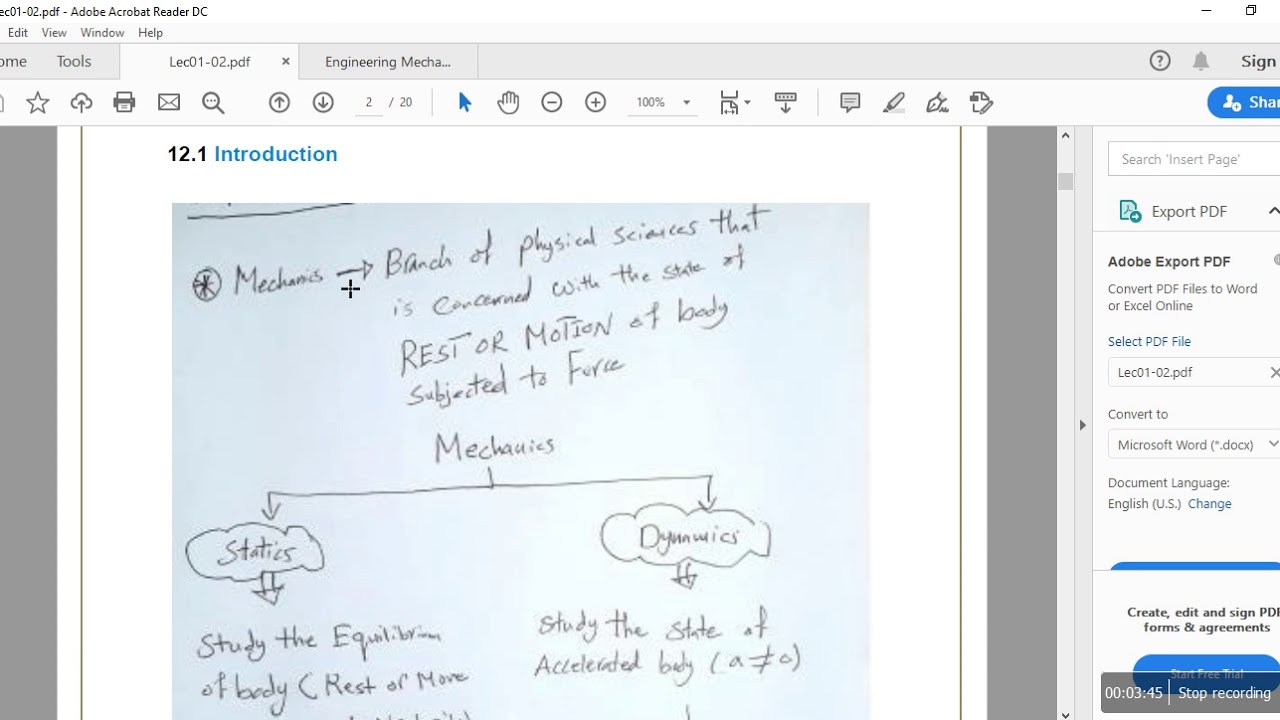 ec01-02.pdf - Adobe Acrobat Reader DC
Edit View Window Help
ome Tools Lec01-02.pdf × Engineering Mecha... Sign
2 / 20 100% Shar
12.1 Introduction
Mechanics → Branch of physical sciences that
is concerned with the state of
REST OR MOTION of body
subjected to Force
Mechanics
Statics Dynamics
Study the Equilibrium
of body (Rest or Move
Study the state of
Accelerated body (a ≠ 0)
Search 'Insert Page'
Export PDF
Adobe Export PDF
Convert PDF Files to Word
or Excel Online
Select PDF File
Lec01-02.pdf ×
Convert to
Microsoft Word (*.docx)
Document Language:
English (U.S.) Change
Create, edit and sign PDF
forms & agreements
Start Free Trial
00:03:45 | Stop recording